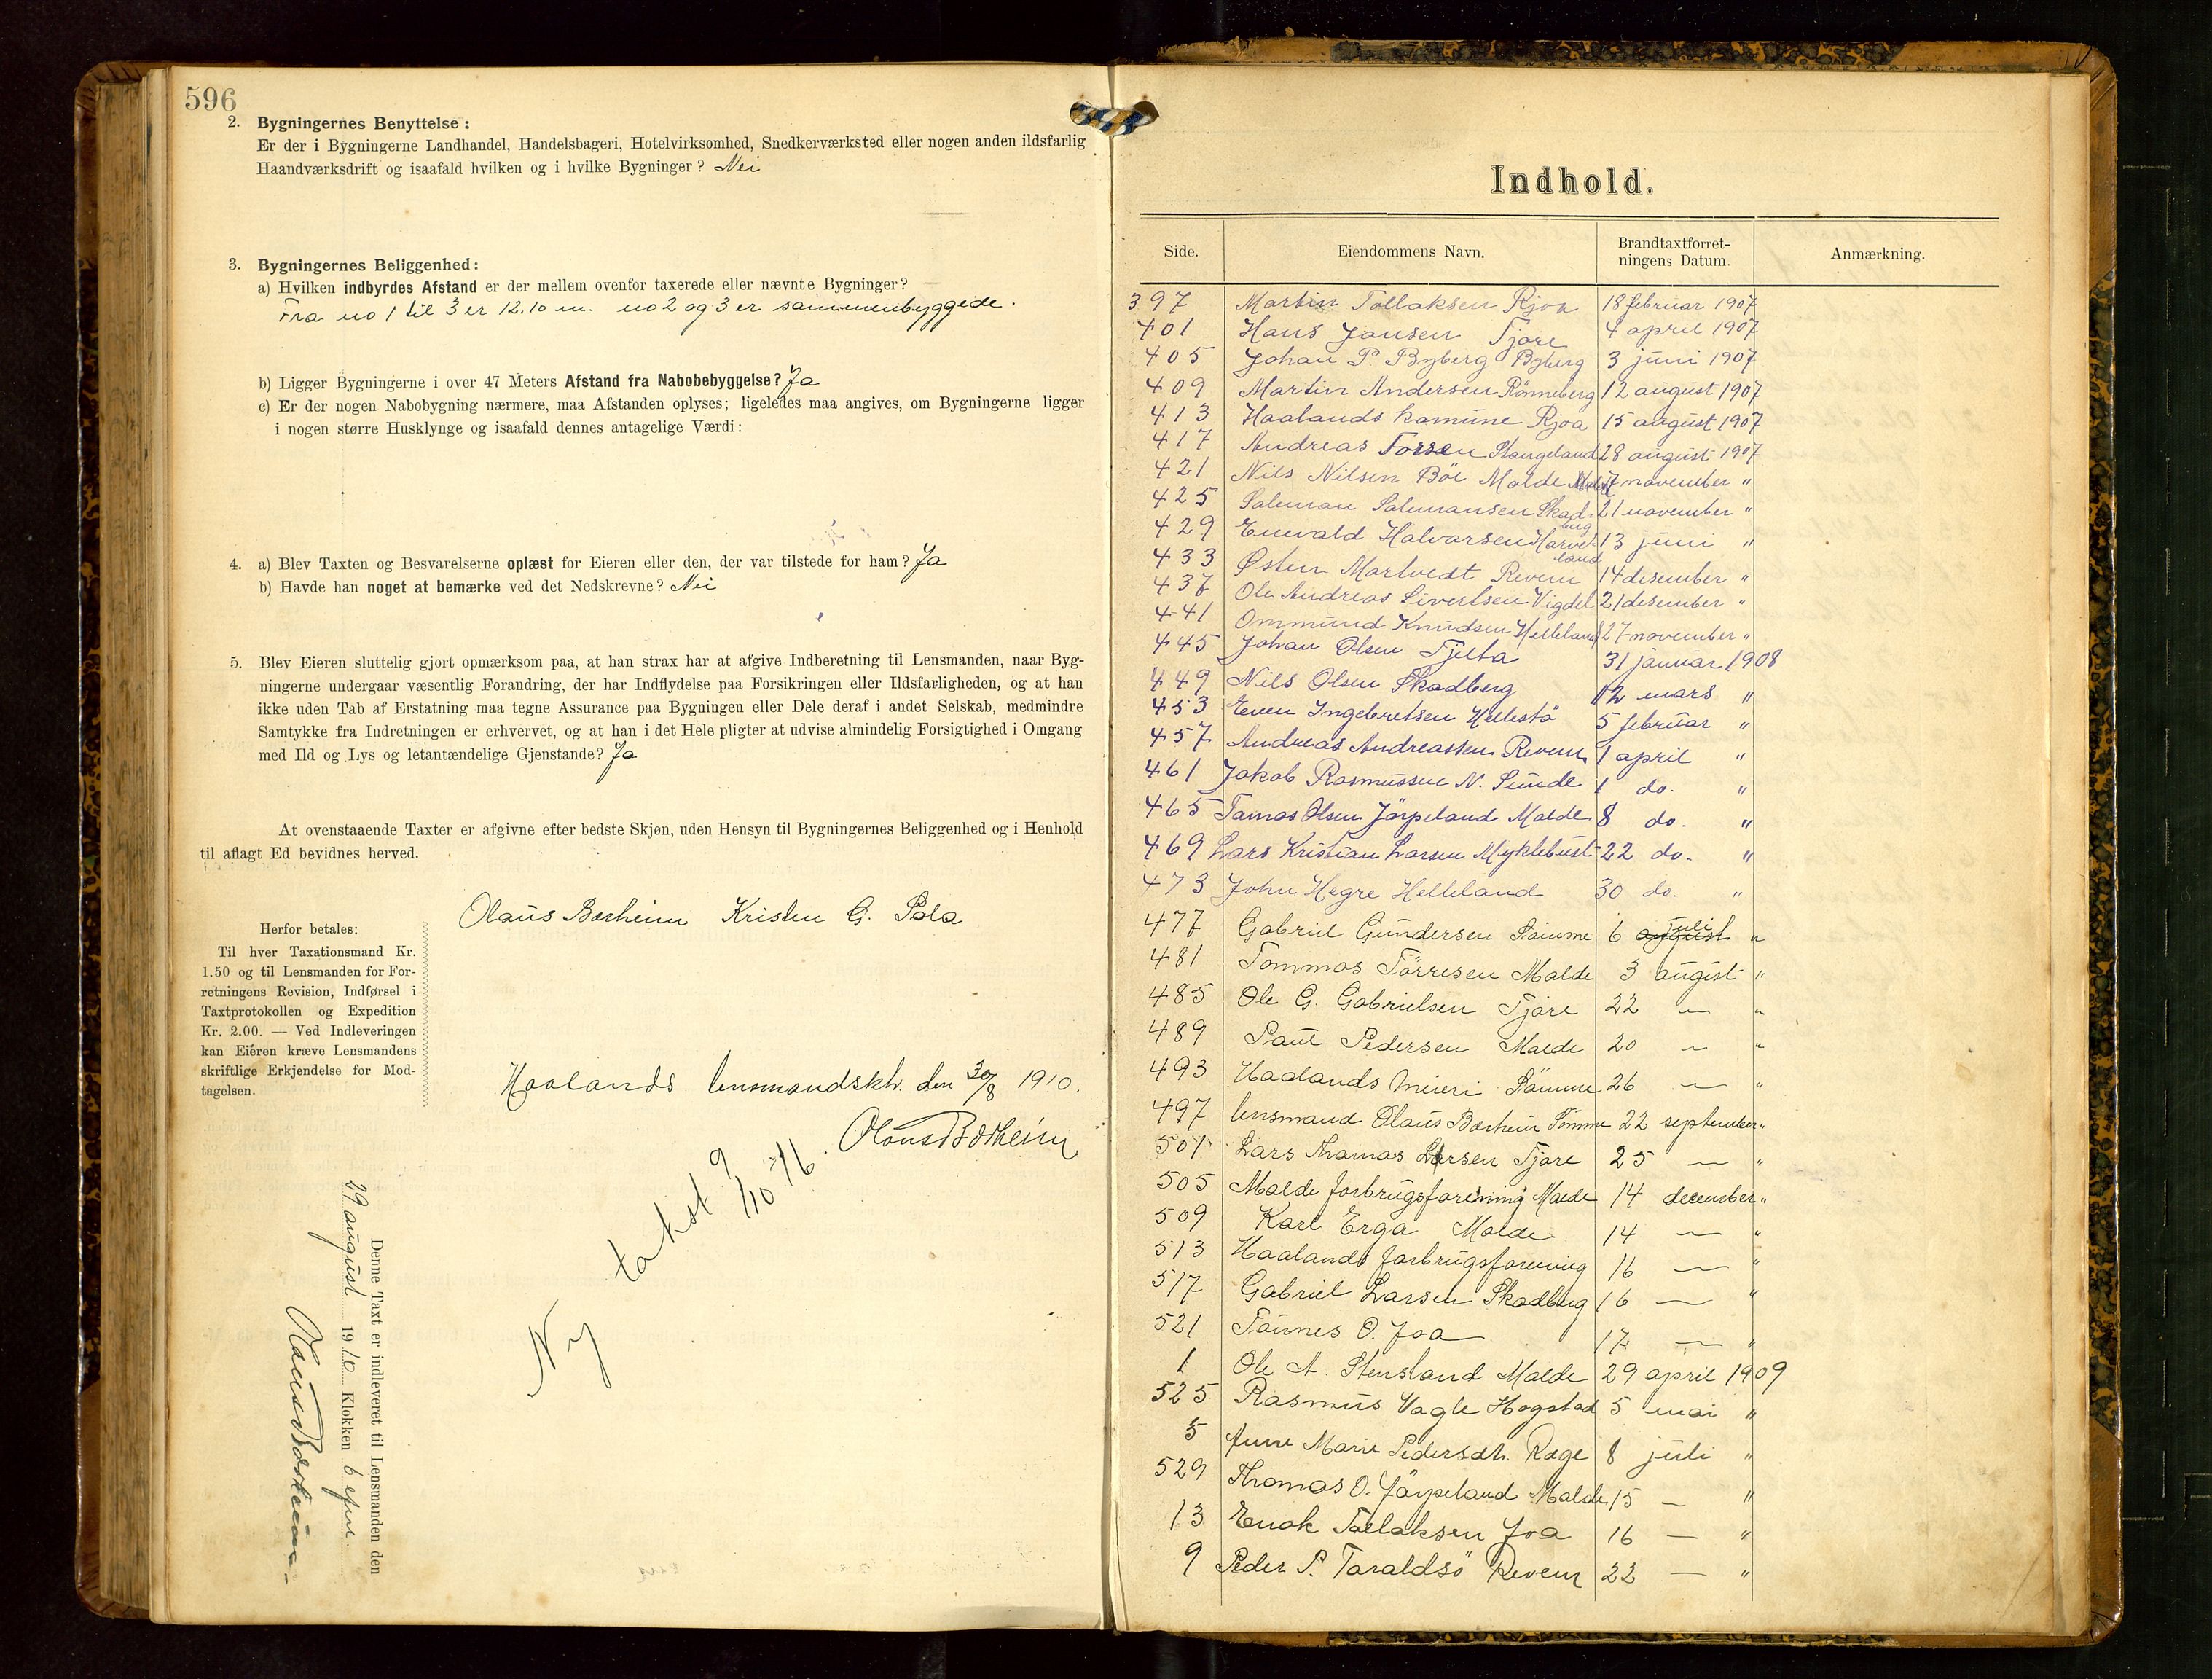 596
2. Bygningernes Benyttelse:
Er der i Bygningerne Landhandel, Handelsbageri, Hotelvirksomhed, Snedkerværksted eller nogen anden ildsfarlig
Haandværksdrift og isaafald hvilken og i hvilke Bygninger? Nei
3. Bygningernes Beliggenhed:
a) Hvilken indbyrdes Afstand er der mellem ovenfor taxerede eller nævnte Bygninger?
Fra no 1 til 3 er 12.10 m. no 2 og 3 er sammenbyggede.
b) Ligger Bygningerne i over 47 Meters Afstand fra Nabobebyggelse? Ja
c) Er der nogen Nabobygning nærmere, maa Afstanden oplyses; ligeledes maa angives, om Bygningerne ligger
i nogen større Husklynge og isaafald dennes antagelige Værdi:
4. a) Blev Taxten og Besvarelserne oplæst for Eieren eller den, der var tilstede for ham? Ja
b) Havde han noget at bemærke ved det Nedskrevne? Nei
5. Blev Eieren sluttelig gjort opmærksom paa, at han strax har at afgive Indberetning til Lensmanden, naar Byg-
ningerne undergaar væsentlig Forandring, der har Indflydelse paa Forsikringen eller Ildsfarligheden, og at han
ikke uden Tab af Erstatning maa tegne Assurance paa Bygningen eller Dele deraf i andet Selskab, medmindre
Samtykke fra Indretningen er erhvervet, og at han i det Hele pligter at udvise almindelig Forsigtighed i Omgang
med Ild og Lys og letantændelige Gjenstande? Ja
At ovenstaaende Taxter er afgivne efter bedste Skjøn, uden Hensyn til Bygningernes Beliggenhed og i Henhold
til aflagt Ed bevidnes herved.
Olaus Børheim Kristen G. Sola
Herfor betales:
Til hver Taxationsmand Kr.
1.50 og til Lensmanden for For-
retningens Revision, Indførsel i
Taxtprotokollen og Expedition
Kr. 2.00. — Ved Indleveringen
kan Eieren kræve Lensmandens
skriftlige Erkjendelse for Mod-
tagelsen.
Haalands lensmandskt. den 30/8 1910.
Olaus Børheim
Ny takst 9/10 16.
Denne Taxt er indleveret til Lensmanden den
29 august 1910 Klokken 6 efm.
Olaus Børheim
Indhold.
Side. Eiendommens Navn. Brandtaxtforret-
ningens Datum. Anmærkning.
397 Martin Tollaksen Rjoa 18 februar 1907
401 Hans Jansen Tjore 4 april 1907
405 Johan P. Byberg Byberg 3 juni 1907
409 Martin Andersen Rönneberg 12 august 1907
413 Haalands komune Rjoa 15 august 1907
417 Andreas Forsen Stangeland 28 august 1907
421 Nils Nilsen Böe Malde 7 november "
425 Saleman Salemansen Skadberg 21 november "
429 Enevald Halvorsen Harveland 13 juni "
433 Østen Martvedt Revem 14 desember "
437 Ole Andreas Sivertsen Vigdel 21 desember "
441 Ommund Knudsen Helleland 27 november "
445 Johan Olsen Tjelta 31 januar 1908
449 Nils Olsen Skadberg 12 mars "
453 Even Ingebretsen Hellestö 5 februar "
457 Andreas Andreassen Revem 1 april "
461 Jakob Rasmussen N. Sunde 1 do. "
465 Tomas Olsen Jörpeland Malde 8 do. "
469 Lars Kristian Larsen Myklebust 22 do. "
473 John Hegre Helleland 30 do. "
477 Gabriel Gundersen Sömme 6 august juli "
481 Tommas Törresen Malde 3 august "
485 Ole G. Gabrielsen Tjore 22 — "
489 Paul Pedersen Malde 20 — "
493 Haalands meieri Sömme 26 — "
497 lensmand Olaus Børheim Sömme 22 september "
501 Lars Thomas Larsen Tjore 25 — "
505 Malde forbrugsforening Malde 14 december "
509 Karl Erga Malde 14 — "
513 Haalands forbrugsforening 16 — "
517 Gabriel Larsen Skadberg 16 — "
521 Tönnes O. Joa 17 — "
1 Ole A. Stensland Malde 29 april 1909
525 Rasmus Vagle Hogstad 5 mai "
5 Anne Marie Pedersdt. Røge 8 juli "
529 Thomas O. Jörpeland Malde 15 — "
13 Enok Tollaksen Joa 16 — "
9 Peder P. Taraldsö Revem 22 — "